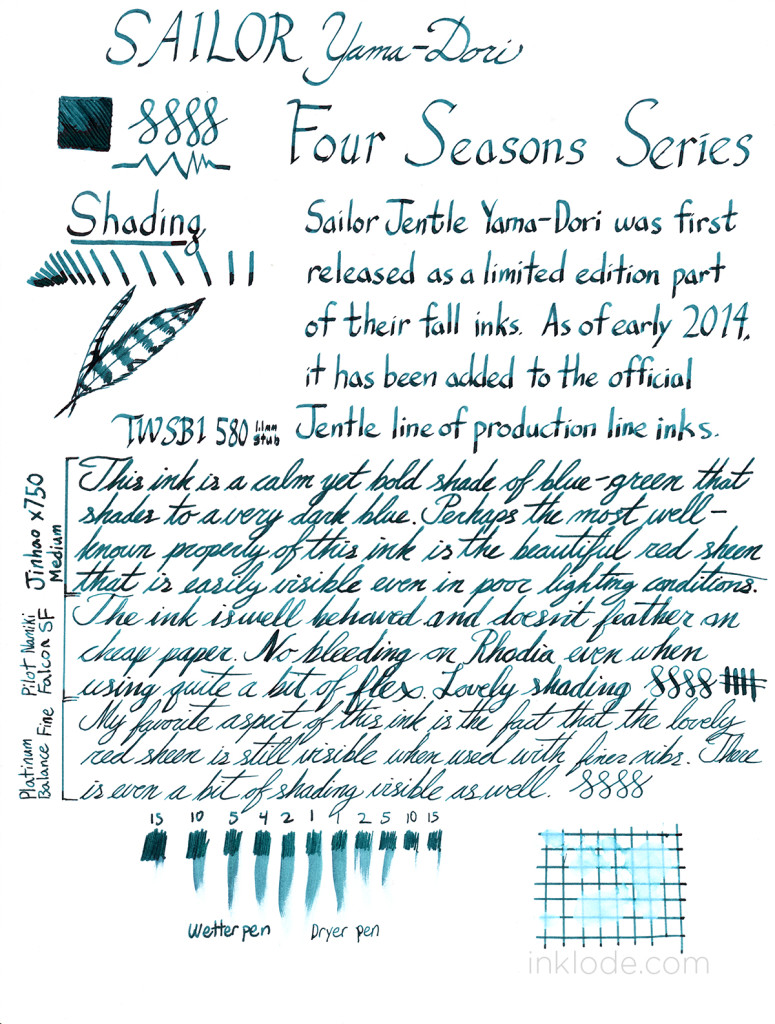 SAILOR Yama-Dori
Four Seasons Series
Shading
Sailor Jentle Yama-Dori was first
released as a limited edition part
of their fall inks. As of early 2014,
it has been added to the official
Jentle line of production line inks.
TWSBI 580 1.1mm stub
Jinhao x750
Medium
This ink is a calm yet bold shade of blue-green that
shades to a very dark blue. Perhaps the most well-
known property of this ink is the beautiful red sheen
that is easily visible even in poor lighting conditions.
Pilot Namiki
Falcon SF
The ink is well behaved and doesn't feather on
cheap paper. No bleeding on Rhodia even when
using quite a bit of flex. Lovely shading
Platinum
Balance Fine
My favorite aspect of this ink is the fact that the lovely
red sheen is still visible when used with finer nibs. There
is even a bit of shading visible as well.
15 10 5 4 2 1 1 2 5 10 15
Wetter pen Dryer pen
inklode.com